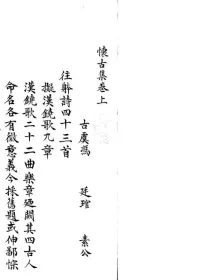 懷古集卷上
古虞馮 廷璿 素公
往躰詩四十三首
擬漢鐃歌九章
漢鐃歌二十二曲樂章廼闕其四古人
命名各有徵意義今採舊題或伸鄙悰